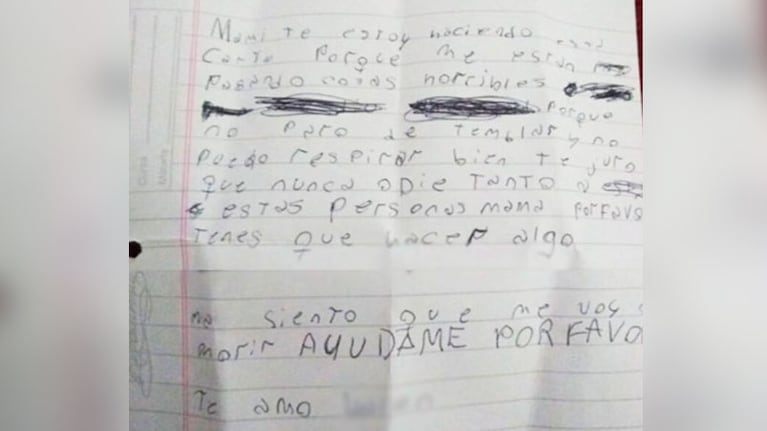 Mami te estoy haciendo esta
Carta Porque me están
Pasando cosas horribles
Porque
no Paro de Temblar y no
Puedo respirar bien Te juro
que nunca odie Tanto a
estas personas mama PorFavo
Tenes que hacer algo
siento que me voy a
morir AYUDAME POR FAVO
Te amo